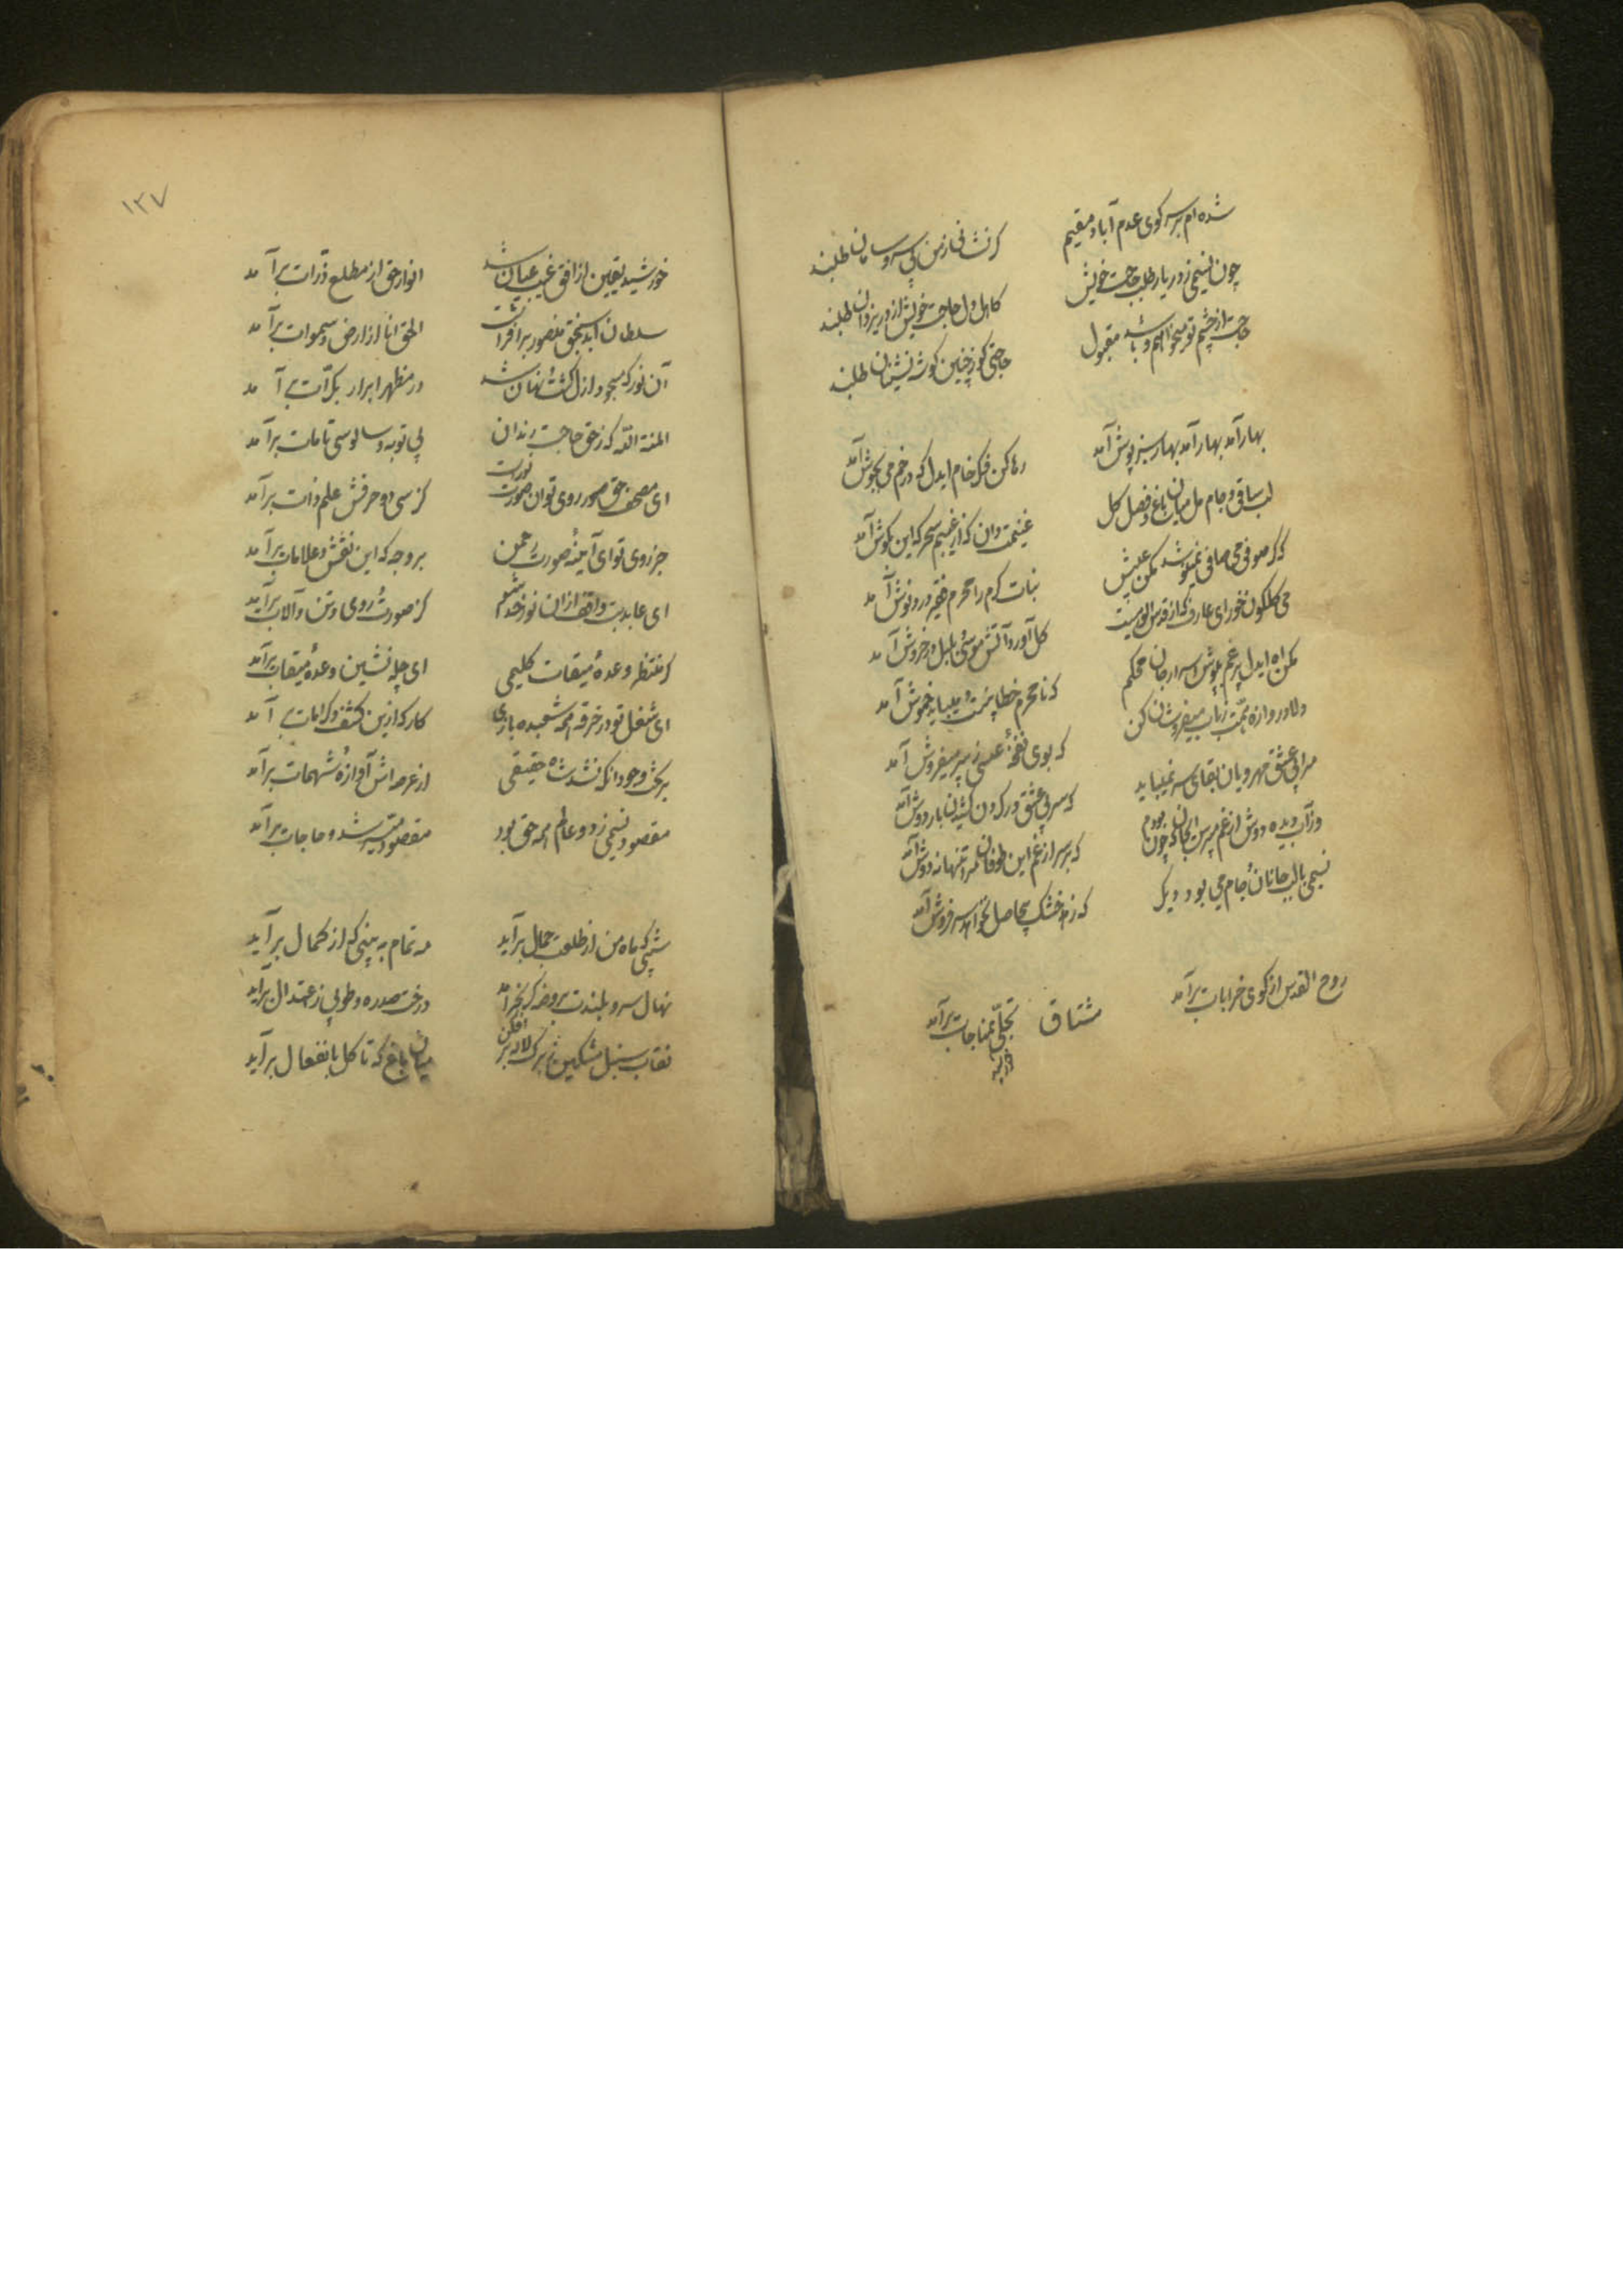 شده ام بر سر کوی عدم آباد مقیم
کر نشانی ز من بی سر و سامان طلبند
چون نسیمی ز در یار طلب حاجت خویش
کاهل دل حاجت خویش از در یزدان طلبند
حاجت از چشم تو میخواهم و باشد مقبول
حاجتی کز چنین کوشه نشینان طلبند
بهار آمد بهار آمد بهار سبز پوش آمد
رها کن فکر خام ایدل که در خم می بجوش آمد
لب ساقی و جام مل میان باغ و فصل کل
غنیمت دان که از غیبم سحر که این بکوش آمد
که کر صوفی می صافی نمینوشد مکن عیبش
نبات کرم را محرم فقیر درد نوش آمد
می کلکون خور ای عارف که از قدس
کل آورد آتش موسی و بلبل در خروش آمد
مکن اه ایدل پر غم بپوش اسرار جان محکم
که نامحرم خطا بینست و میباید خموش آمد
دلا دروازه همت ز باب میفروشان کن
که بوی نفخهٔ عیسی ز پیر میفروش آمد
مرا بی عشق مهرویان بقای سر نمیباید
که سر بی عشق در کردن کشیدن بار دوش آمد
ز آب دیده دوش از غم مپرس ایجان که چون بودم
که بر سر از غم این طوفان مرا تنها نه دوش آمد
نسیمی با لب جانان و جام می بود دیکر
که زهد خشک بیحاصل نخواهد سر فروش آمد
روح القدس از کوی خرابات برآمد
مشتاق تجلی بمناجات برآمد
خورشید
۱۳۷
خورشید یقین از افق غیب عیان شد
انوار حق از مطلع ذرات برآمد
سلطان ابد سنجق منصور برافراشت
الحق انا از ارض و سموات برآمد
آن نور که مسجود ازل کشت و نهان شد
در مظهر ابرار بکرات برآمد
المنة الله که ز حق حاجت رندان
بی توبه و سالوسی و تامات برآمد
ای مصحف حق سوره روی تو
کز سی و دو حرفش علم ذات برآمد
جز روی تو ای آینهٔ صورت رحمن
بر وجه که این نقش و علامات برآمد
ای عابد بت واقف از ان نور خدا شو
کز صورت روی وثن و آلات برآمد
کر منتظر وعدهٔ میقات کلیمی
ای چله نشین وعدهٔ میقات برآمد
ای شغل تو در خرقه همه شعبده بازی
کار که ازین کشف و کرامات برآمد
بر تخت وجود انکه نشد شاه حقیقی
از عرصه اش آوازهٔ شهمات برآمد
مقصود نسیمی ز دو عالم همه حق بود
مقصود میسر شد و حاجات برآمد
شبی که ماه من از طلعت جمال برآید
مه تمام ببینی که از کمال برآید
نهال سرو بلندت بروضه کر بخرامد
درخت سدره و طوبی ز اعتدال برآید
نقاب سنبل مشکین ز برک لاله بر افکن
میان باغ که تا کل بانفعال برآید